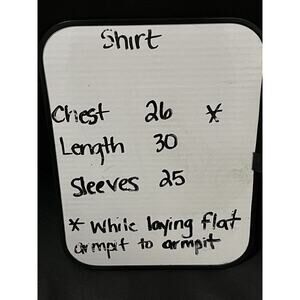 Shirt
Chest 26 *
Length 30
Sleeves 25
* While laying flat
armpit to armpit